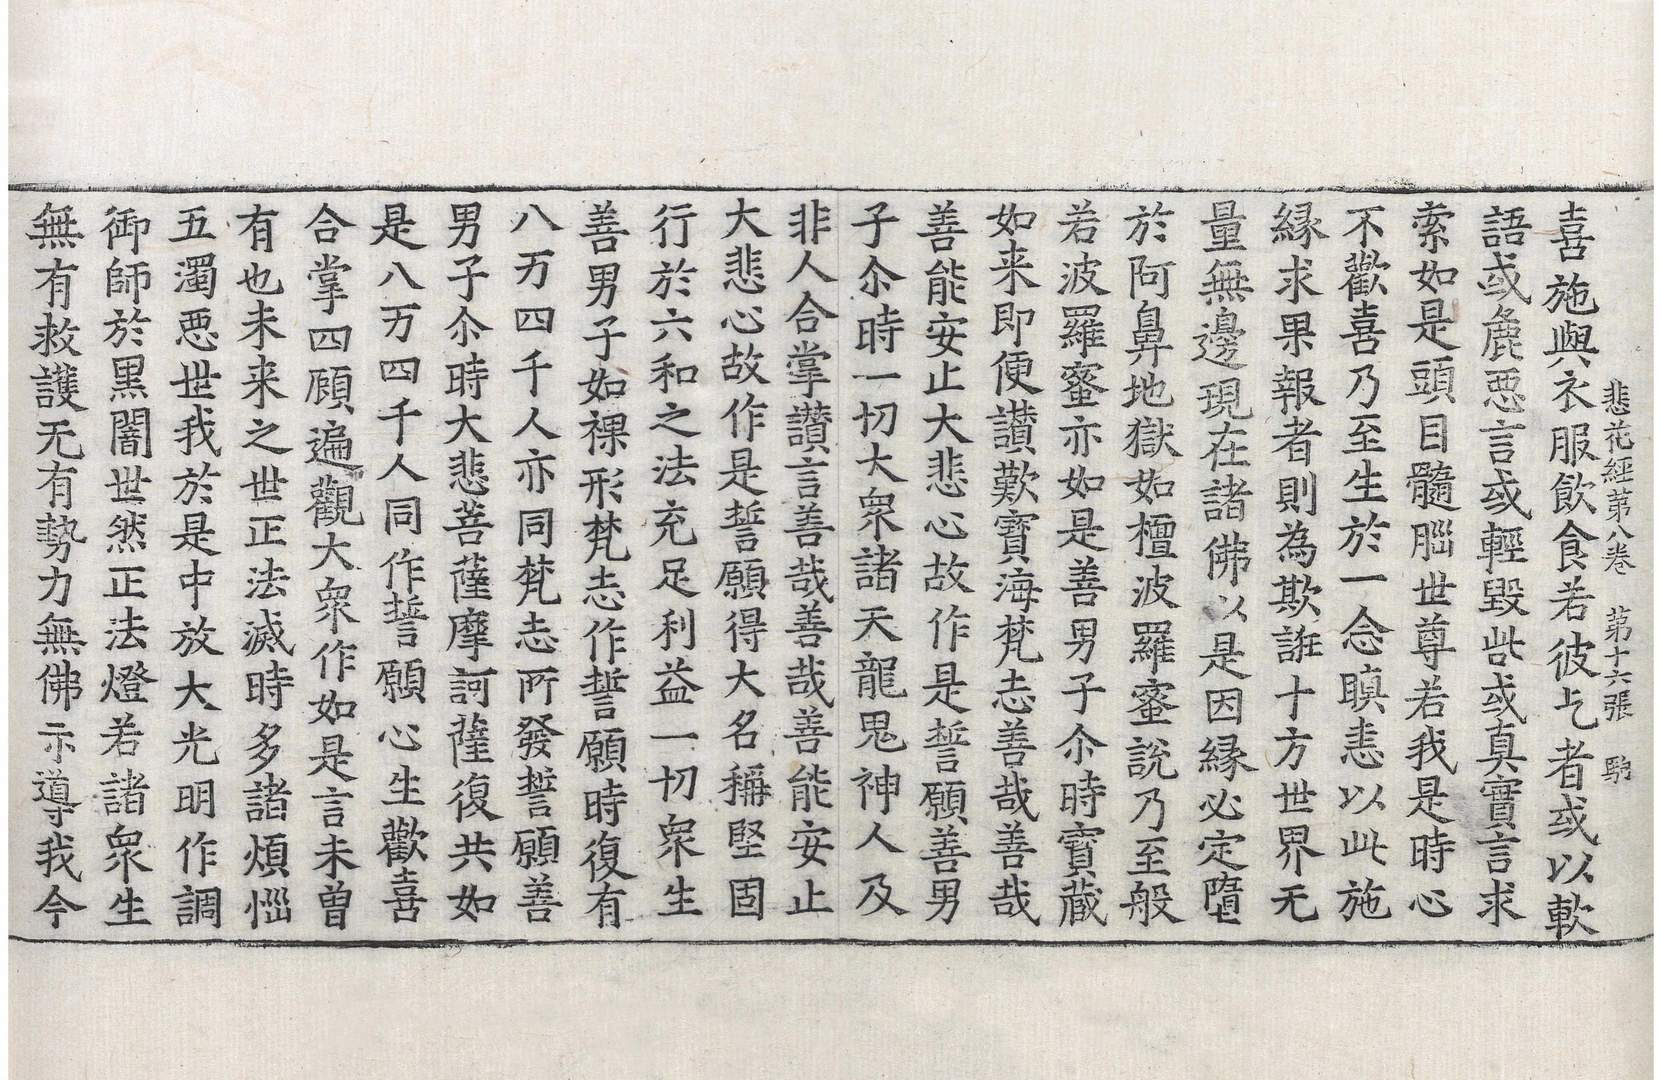 悲花經第八卷　第十六張　駒
喜施與衣服飲食若彼乞者或以軟
語或麁悪言或輕毀呰或真實言求
索如是頭目髓腦世尊若我是時心
不歡喜乃至生於一念瞋恚以此施
縁求果報者則為欺誑十方世界无
量無邊現在諸佛以是因縁必定墮
於阿鼻地獄如檀波羅蜜說乃至般
若波羅蜜亦如是善男子尒時寶藏
如来即便讃歎寶海梵志善哉善哉
善能安止大悲心故作是誓願善男
子尒時一切大衆諸天龍鬼神人及
非人合掌讃言善哉善哉善能安止
大悲心故作是誓願得大名稱堅固
行於六和之法充足利益一切衆生
善男子如裸形梵志作誓願時復有
八万四千人亦同梵志所發誓願善
男子尒時大悲菩薩摩訶薩復共如
是八万四千人同作誓願心生歡喜
合掌四顧遍觀大衆作如是言未曽
有也未来之世正法滅時多諸煩惱
五濁悪世我於是中放大光明作調
御師於黒闇世然正法燈若諸衆生
無有救護无有勢力無佛示導我今